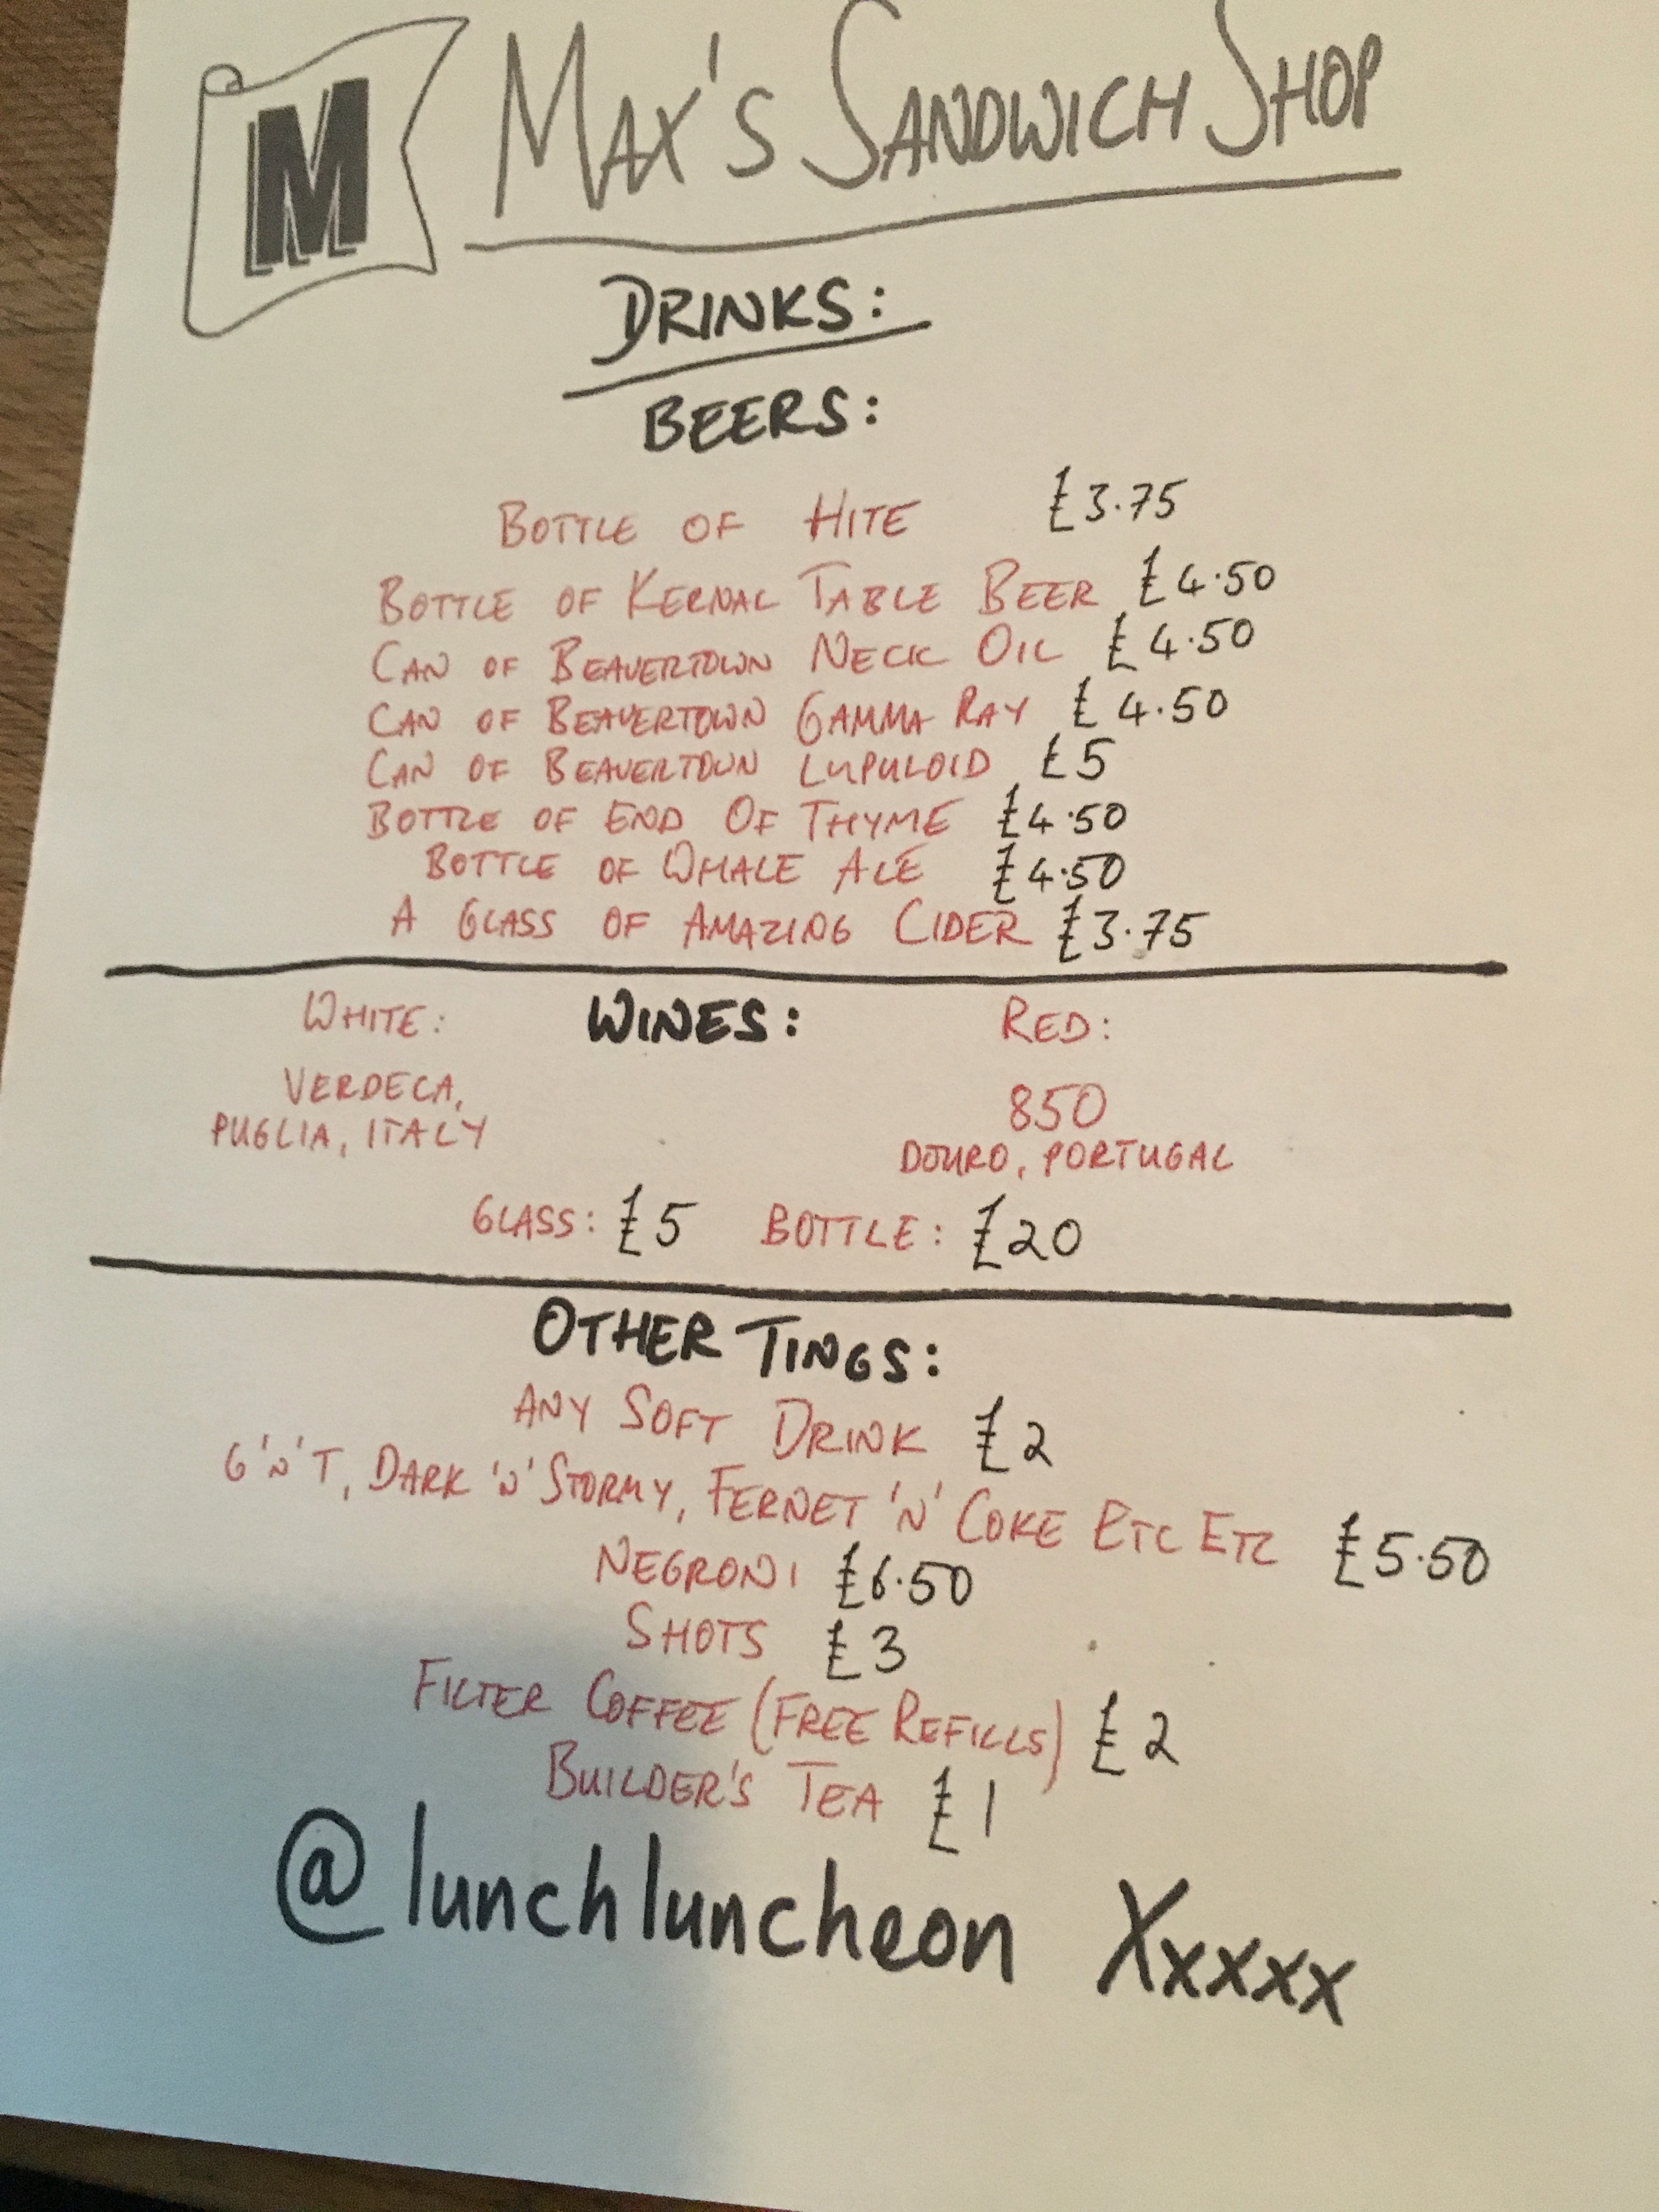 M MAX'S SANDWICH SHOP
DRINKS:
BEERS:
BOTTLE OF HITE £3.75
BOTTLE OF KERNAL TABLE BEER £4.50
CAN OF BEAVERTOWN NECK OIL £4.50
CAN OF BEAVERTOWN GAMMA RAY £4.50
CAN OF BEAVERTOWN LUPULOID £5
BOTTLE OF END OF THYME £4.50
BOTTLE OF WHALE ALE £4.50
A GLASS OF AMAZING CIDER £3.75
WHITE: WINES: RED:
VERDECA, 850
PUGLIA, ITALY DOURO, PORTUGAL
GLASS: £5 BOTTLE: £20
OTHER TINGS:
ANY SOFT DRINK £2
G'N'T, DARK 'N' STORMY, FERNET 'N' COKE ETC ETC £5.50
NEGRONI £6.50
SHOTS £3
FILTER COFFEE (FREE REFILLS) £2
BUILDER'S TEA £1
@lunchluncheon Xxxxx